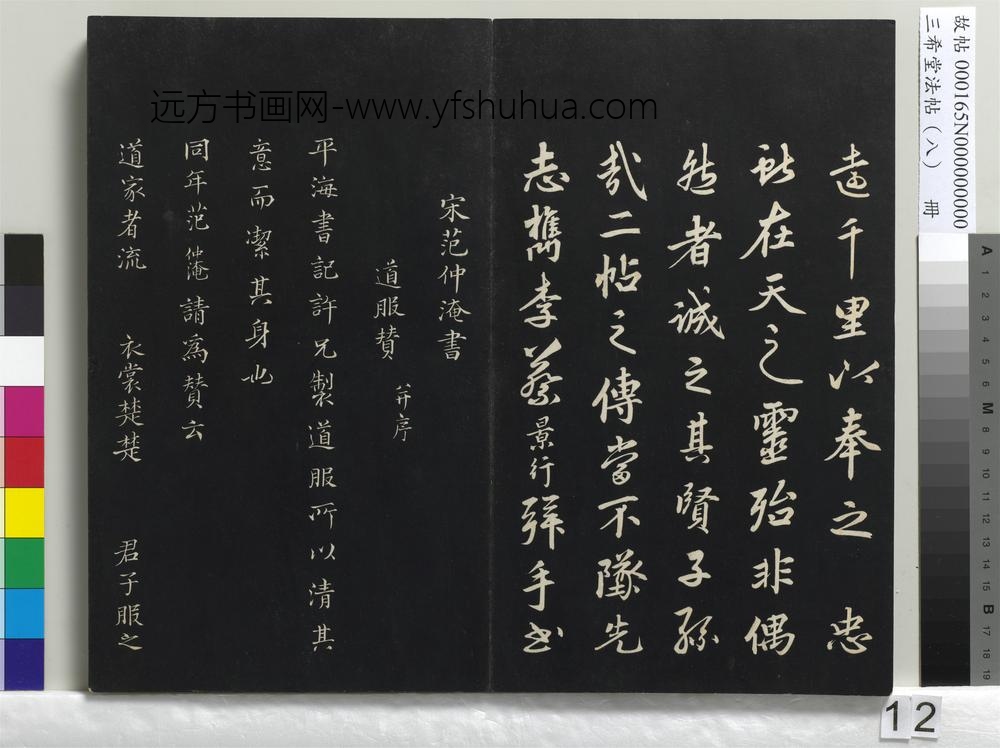 故帖 000165N000000000
三希堂法帖（八） 冊
远方书画网-www.yfshuhua.com
遠千里以奉之 忠
獻在天之靈殆非偶
然者誠之其賢子孫
哉二帖之傳當不墜先
志檇李蔡景行拜手書
宋范仲淹書
道服贊 并序
平海書記許兄製道服所以清其
意而潔其身也
同年范仲淹請為贊云
道家者流 衣裳楚楚 君子服之
A 1 2 3 4 5 6 M 8 9 10 11 12 13 14 15 B 17 18 19
12